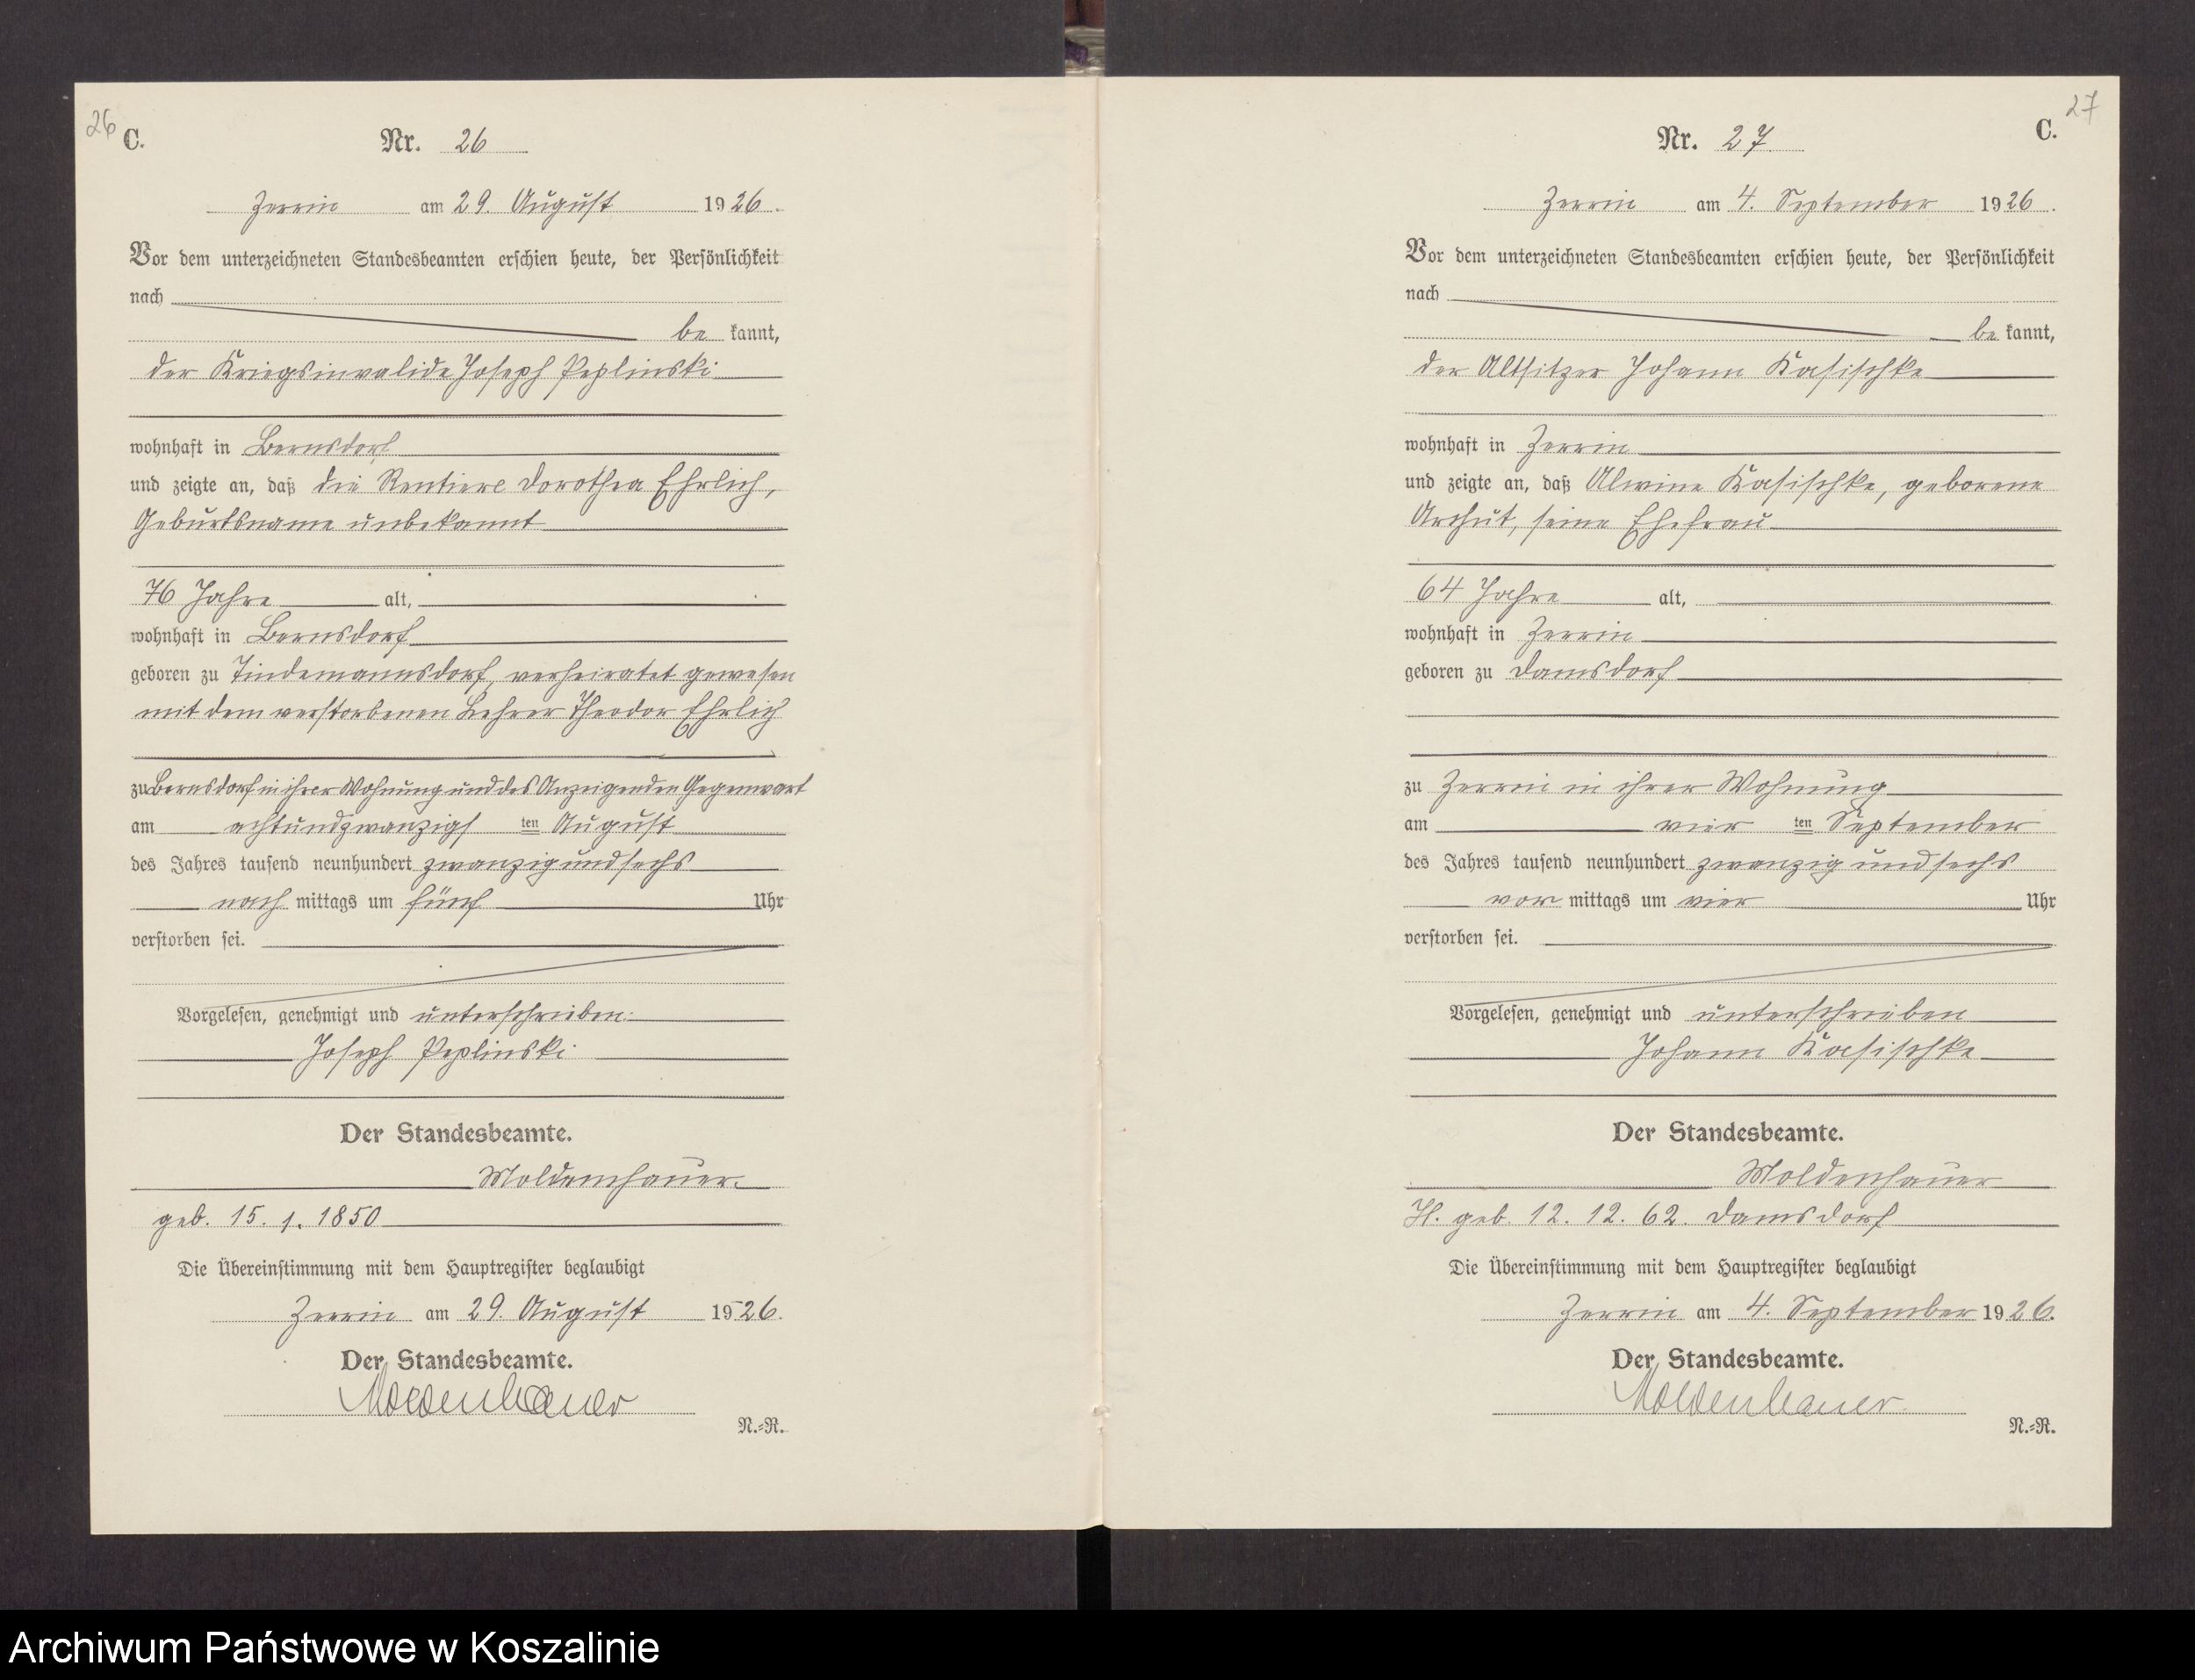 26
C.
Nr. 26
Zerrin am 29. August 1926.
Vor dem unterzeichneten Standesbeamten erschien heute, der Persönlichkeit
nach
be kannt,
der Kriegsinvalide Joseph Peplinski
wohnhaft in Bernsdorf
und zeigte an, daß die Rentiere Dorothea Ehrlich,
Geburtsname unbekannt
76 Jahre alt,
wohnhaft in Bernsdorf
geboren zu Tindemannsdorf, verheiratet gewesen
mit dem verstorbenen Lehrer Theodor Ehrlich
zu Bernsdorf in ihrer Wohnung und des Anzeigenden Gegenwart
am achtundzwanzigs ten August
des Jahres tausend neunhundert zwanzig und sechs
nach mittags um fünf Uhr
verstorben sei.
Vorgelesen, genehmigt und unterschrieben:
Joseph Peplinski
Der Standesbeamte.
Moldenhauer.
geb. 15. 1. 1850
Die Übereinstimmung mit dem Hauptregister beglaubigt
Zerrin am 29. August 1926.
Der Standesbeamte.
Moldenhauer
N.=R.
27
C.
Nr. 27.
Zerrin am 4. September 1926.
Vor dem unterzeichneten Standesbeamten erschien heute, der Persönlichkeit
nach
be kannt,
der Altsitzer Johann Kasischke
wohnhaft in Zerrin
und zeigte an, daß Alwine Kasischke, geborene
Arthut, seine Ehefrau
64 Jahre alt,
wohnhaft in Zerrin
geboren zu Damsdorf
zu Zerrin in ihrer Wohnung
am vier ten September
des Jahres tausend neunhundert zwanzig und sechs
vor mittags um vier Uhr
verstorben sei.
Vorgelesen, genehmigt und unterschrieben
Johann Kasischke
Der Standesbeamte.
Moldenhauer
H. geb. 12. 12. 62. Damsdorf
Die Übereinstimmung mit dem Hauptregister beglaubigt
Zerrin am 4. September 1926.
Der Standesbeamte.
Moldenhauer.
N.=R.
Archiwum Państwowe w Koszalinie